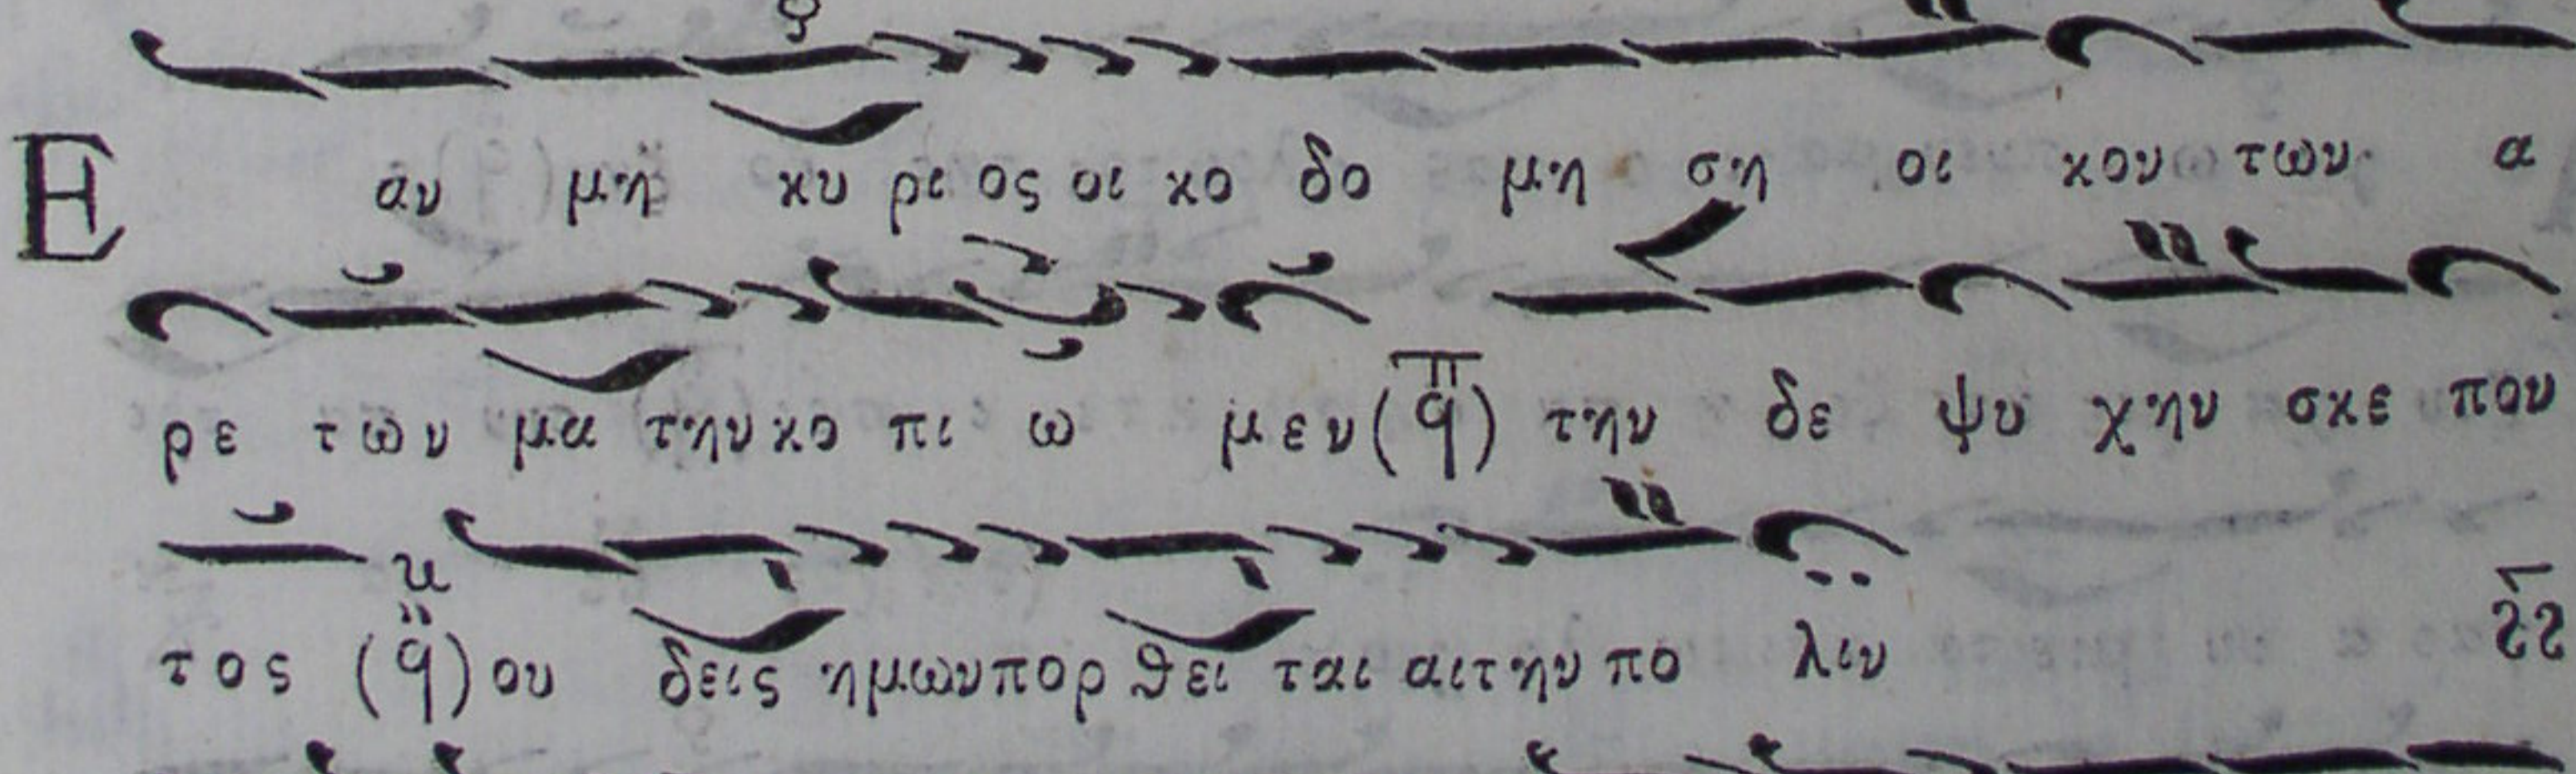 Ε αν μη κυ ρι ος οι κο δο μη ση οι κον των α
ρε των μα την κο πι ω μεν (q) την δε ψυ χην σκε που
τος (q) ου δεις ημων πορ θει ται αι την πο λιν